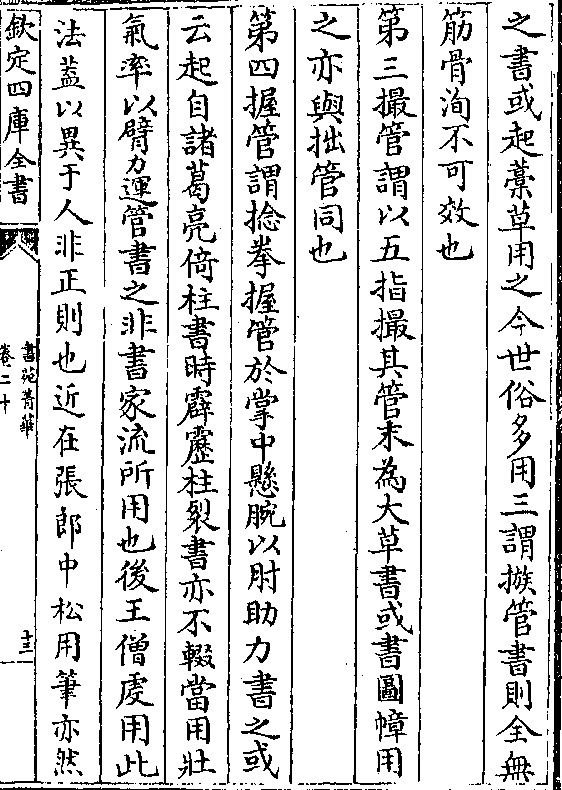 之書或起藁草用之今世俗多用三謂撥管書則全無
筋骨洵不可效也
第三撮管謂以五指撮其管末為大草書或書圖幛用
之亦與拙管同也
第四握管謂捻拳握管於掌中懸腕以肘助力書之或
云起自諸葛亮倚柱書時霹靂柱裂書亦不輟當用壯
氣率以臂力運管書之非書家流所用也後王僧虔用此
法葢以異于人非正則也近在張郎中松用筆亦然
欽定四庫全書
書苑菁華
卷二十
十三